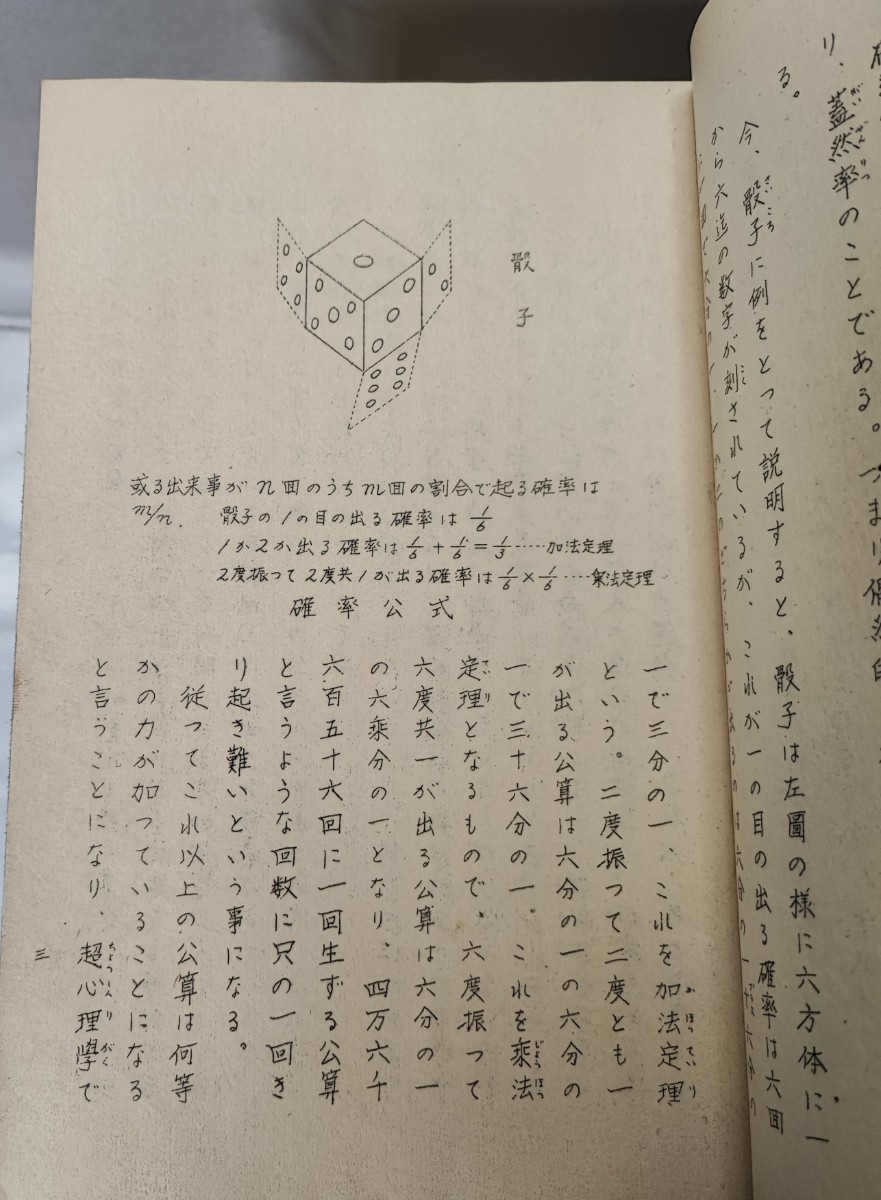 り、蓋然率のことである。つまり偶然的
る。
今、骰子に例をとって説明すると、骰子は左圖の様に六方体に一
から六迄の数字が刻されているが、これが一の目の出る確率は六回
骰子
或る出来事がn回のうちm回の割合で起る確率は
m/n. 骰子の1の目の出る確率は 1/6
1か2か出る確率は 1/6 + 1/6 = 1/3 ……加法定理
2度振つて2度共1が出る確率は 1/6 × 1/6 ……乗法定理
確率公式
一で三分の一、これを加法定理
という。二度振つて二度とも一
が出る公算は六分の一の六分の
一で三十六分の一。これを乗法
定理となるもので、六度振つて
六度共一が出る公算は六分の一
の六乗分の一となり、四万六千
六百五十六回に一回生ずる公算
と言うような回数に只の一回き
り起き難いという事になる。
従つてこれ以上の公算は何等
かの力が加つていることになる
と言うことになり、超心理學で
三